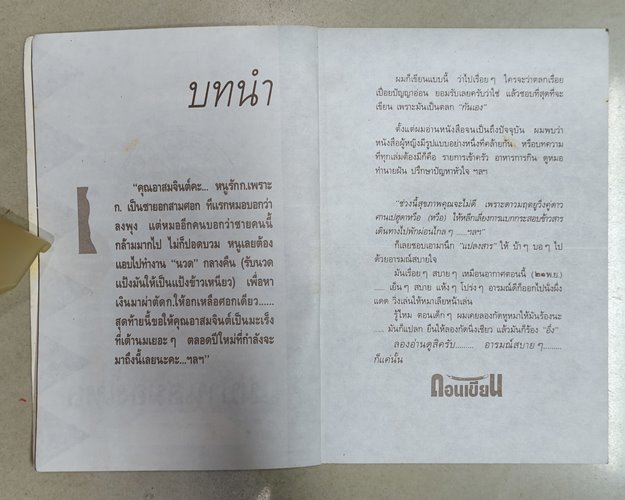 บทนำ
“คุณอาสมจินต์คะ... หนูรักก.เพราะ
ก. เป็นชายอกสามศอก ที่แรกหมอบอกว่า
ลงพุง แต่หมออีกคนบอกว่าชายคนนี้
กล้ามมากไป ไม่ก็ปอดบวม หนูเลยต้อง
แอบไปทำงาน “นวด” กลางคืน (รับนวด
แป้งมันให้เป็นแป้งข้าวเหนียว) เพื่อหา
เงินมาผ่าตัดกให้อกเหลือศอกเดียว......
สุดท้ายนี้ขอให้คุณอาสมจินต์เป็นมะเร็ง
ที่เต้านมเยอะๆ ตลอดปีใหม่ที่กำลังจะ
มาถึงนี้เลยนะคะ...ฯลฯ”
ผมก็เขียนแบบนี้ ว่าไปเรื่อยๆ ใครจะว่าตลกเรื่อย
เปื่อยปัญญาอ่อน ยอมรับเลยครับว่าใช่ แล้วชอบที่สุดที่จะ
เขียน เพราะมันเป็นตลก “กันเอง”
ตั้งแต่ผมอ่านหนังสือจนเป็นถึงปัจจุบัน ผมพบว่า
หนังสือผู้หญิงมีรูปแบบอย่างหนึ่งที่คล้ายกัน หรือบทความ
ที่ทุกเล่มต้องมีก็คือ รายการเข้าครัว อาหารการกิน ดูหมอ
ทำนายฝัน ปรึกษาปัญหาหัวใจ ฯลฯ
“ช่วงนี้สุขภาพคุณจะไม่ดี เพราะดาวมฤตยูวิ่งคู่ดาว
ศานเปฮูดาหวือ (หวือ) ให้หลีกเลี่ยงการแบกกระสอบข้าวสาร
เดินทางไปพักผ่อนไกลๆ .....ฯลฯ”
ก็เลยชอบเอามานึก “แปลงสาร” ให้ บ้าๆ บอๆ ไป
ด้วยอารมณ์สบายใจ
มันเรื่อยๆ สบายๆ เหมือนอากาศตอนนี้ (๒๑พ.ย.)
..... เย็นๆ สบาย แห้งๆ โปร่งๆ อารมณ์ดีก็ออกไปนั่งผึ่ง
แดด วิ่งเล่นให้หมาเลียหน้าเล่น
รู้ไหม ตอนเด็กๆ ผมเคยลองกัดหูหมาให้มันร้องนะ
..... มันก็แปลก ยืนให้ลองกัดนิ่งเชียว แล้วมันก็ร้อง “อิ๋ง”
ลองอ่านดูสิครับ........ อารมณ์สบายๆ........
ก็แค่นั้น
ดอนเขียน